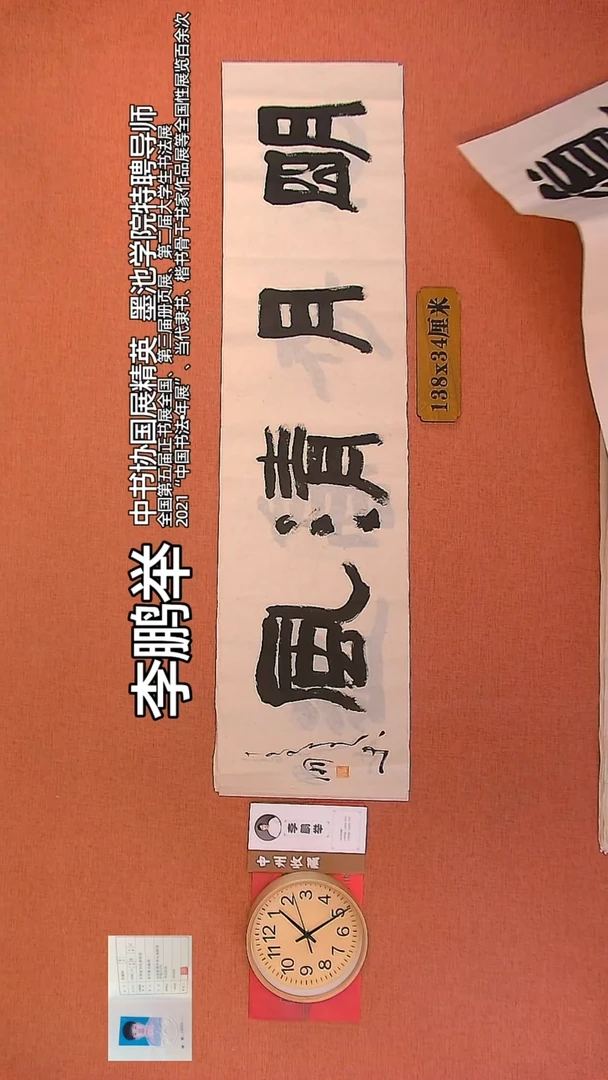 李鹏举
中书协国展精英 墨池学院特聘导师
全国第五届正书展全国、第三届册页展、第二届大学生书法展
2021“中国书法·年展”、当代隶书、楷书骨干书家作品展等全国性展览百余次
朙月清風
138x34厘米
李鹏举
中州收藏
12
1
2
3
4
5
6
7
8
9
10
11